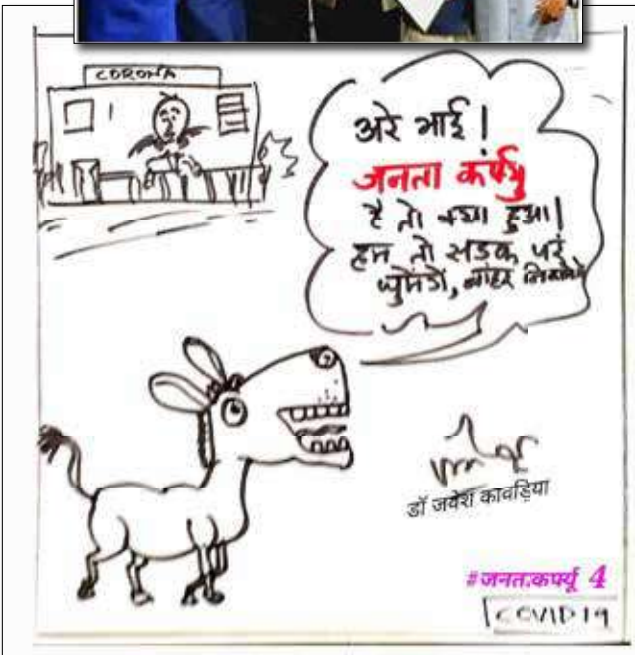 CORONA
अरे भाई!
जनता कर्फ्यु
है तो क्या हुआ।
हम तो सडक पर
घुमेंगे, बाहर निकलेंगे
डॉ जवेश कावड़िया
#जनता:कर्फ्यू 4
COVID19